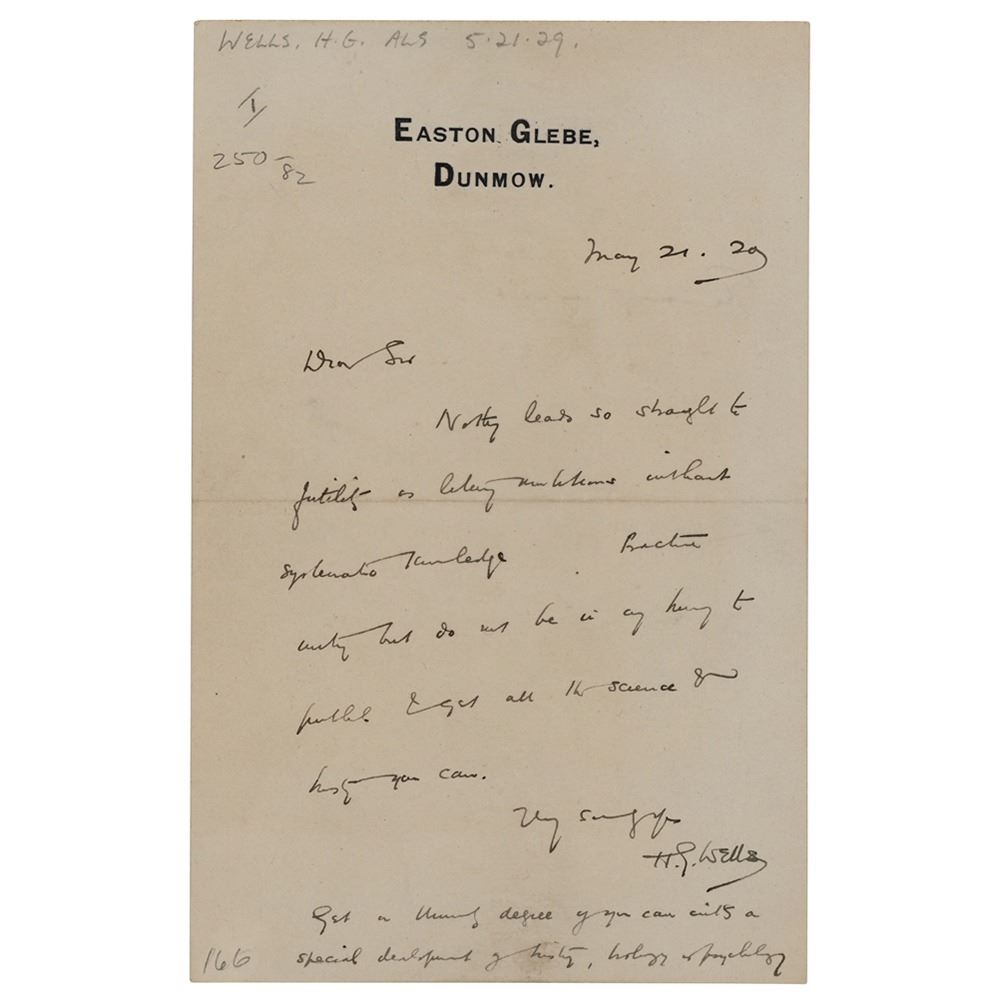 WELLS, H.G. ALS 5.21.29.
1/
250-
82
EASTON GLEBE,
DUNMOW.
May 21. 29
Dear Sir
Nothing leads so straight to
futility as literary ambitions without
systematic knowledge. Practise
writing but do not be in any hurry to
publish & get all the science &
history you can.
Very sincerely yrs
H.G. Wells
Get a University degree if you can with a
special development of history, biology or psychology
166